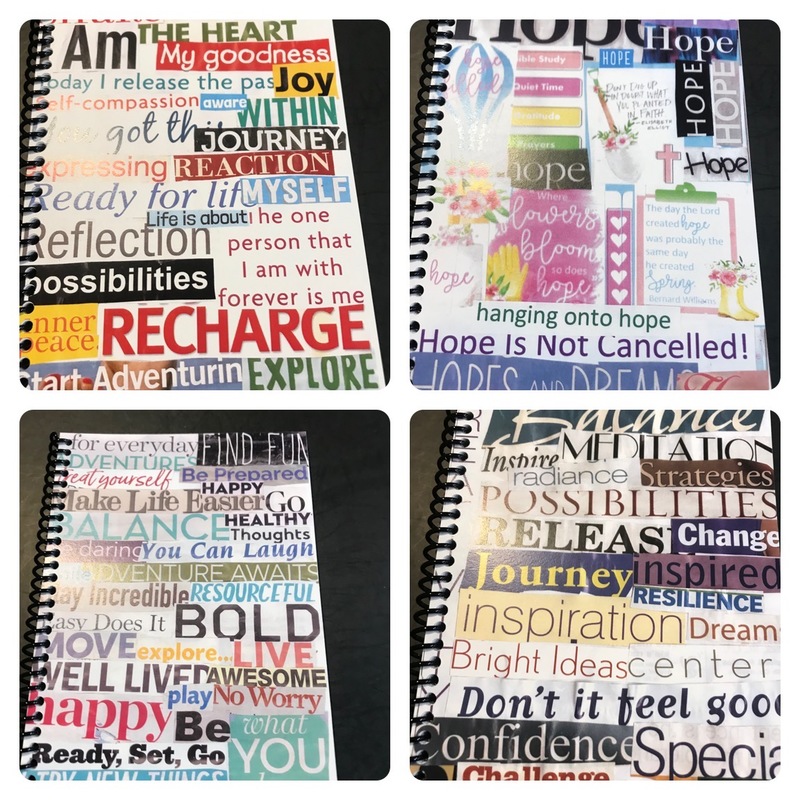 Am THE HEART
My goodness
Today I release the past Joy
self-compassion aware WITHIN
You got this JOURNEY
expressing REACTION
Ready for life MYSELF
Life is about The one
Reflection person that
possibilities I am with
forever is me
inner peace RECHARGE
Start Adventuring EXPLORE
Hope Hope
hope filled Bible Study HOPE
Quiet Time
Gratitude
Prayers
DON'T DIG UP
IN DOUBT WHAT
YOU PLANTED
IN FAITH
ELISABETH
ELLIOT
HOPE HOPE
hope Hope
Where
flowers
bloom
so does
hope
hope
The day the Lord
created hope
was probably the
same day
he created
Spring.
Bernard Williams
hanging onto hope
Hope Is Not Cancelled!
HOPES AND DREAMS
for everyday FIND FUN
ADVENTURES
treat yourself Be Prepared
HAPPY
Make Life Easier Go
BALANCE HEALTHY
Thoughts
Be daring You Can Laugh
ADVENTURE AWAITS
Stay Incredible RESOURCEFUL
Easy Does It BOLD
MOVE explore... LIVE
WELL LIVED AWESOME
happy play No Worry
Be what
Ready, Set, Go YOU
TRY NEW THINGS
Balance
Inspire MEDITATION
radiance Strategies
POSSIBILITIES
RELEASE Change
Journey Inspired
RESILIENCE
inspiration Dream
Bright Ideas center
Don't it feel good
Confidence Special
Challenge